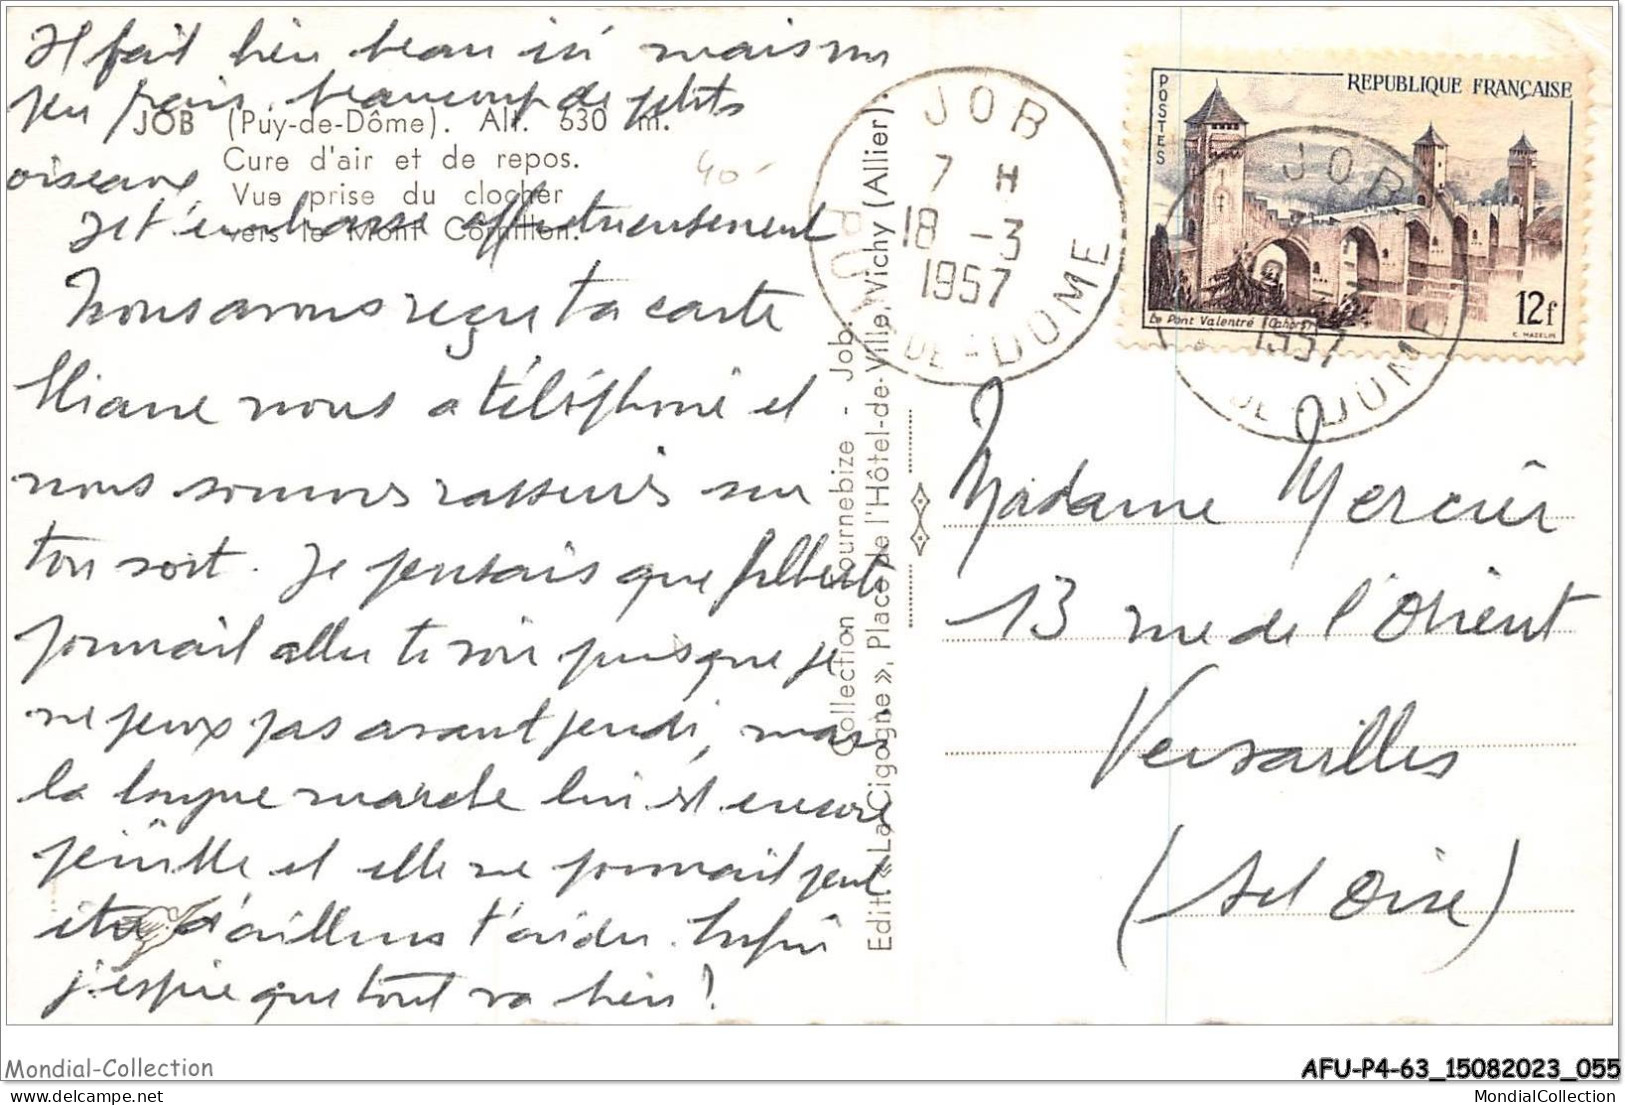 Il fait bien beau ici mais un
peu frais, beaucoup de petits
oiseaux,
Je t'embrasse affectueusement
JOB (Puy-de-Dôme). Alt. 630 m.
Cure d'air et de repos.
Vue prise du clocher
vers le Mont Cornillon.
40
Nous avons reçu ta carte
Eliane nous a téléphoné et
nous sommes rassurés sur
ton sort. Je pensais que
pourrait aller te voir puisque je
ne peux pas avant jeudi, mais
la longue marche lui est encore
pénible et elle ne pourrait peut
être d'ailleurs t'aider. Enfin
j'espère que tout va bien!
Collection Tournebize - Job.
Edit. « La Cigogne », Place de l'Hôtel-de-Ville, Vichy (Allier).
JOB
7 H
18 -3
1957
PUY-DE-DOME
POSTES
REPUBLIQUE FRANÇAISE
Le Pont Valentré (Cahors)
12f
JOB
1957
DE-DOME
Madame Mercier
13 rue de l'Orient
Versailles
(S et Oise)
Mondial-Collection
AFU-P4-63_15082023_055
MondialCollection